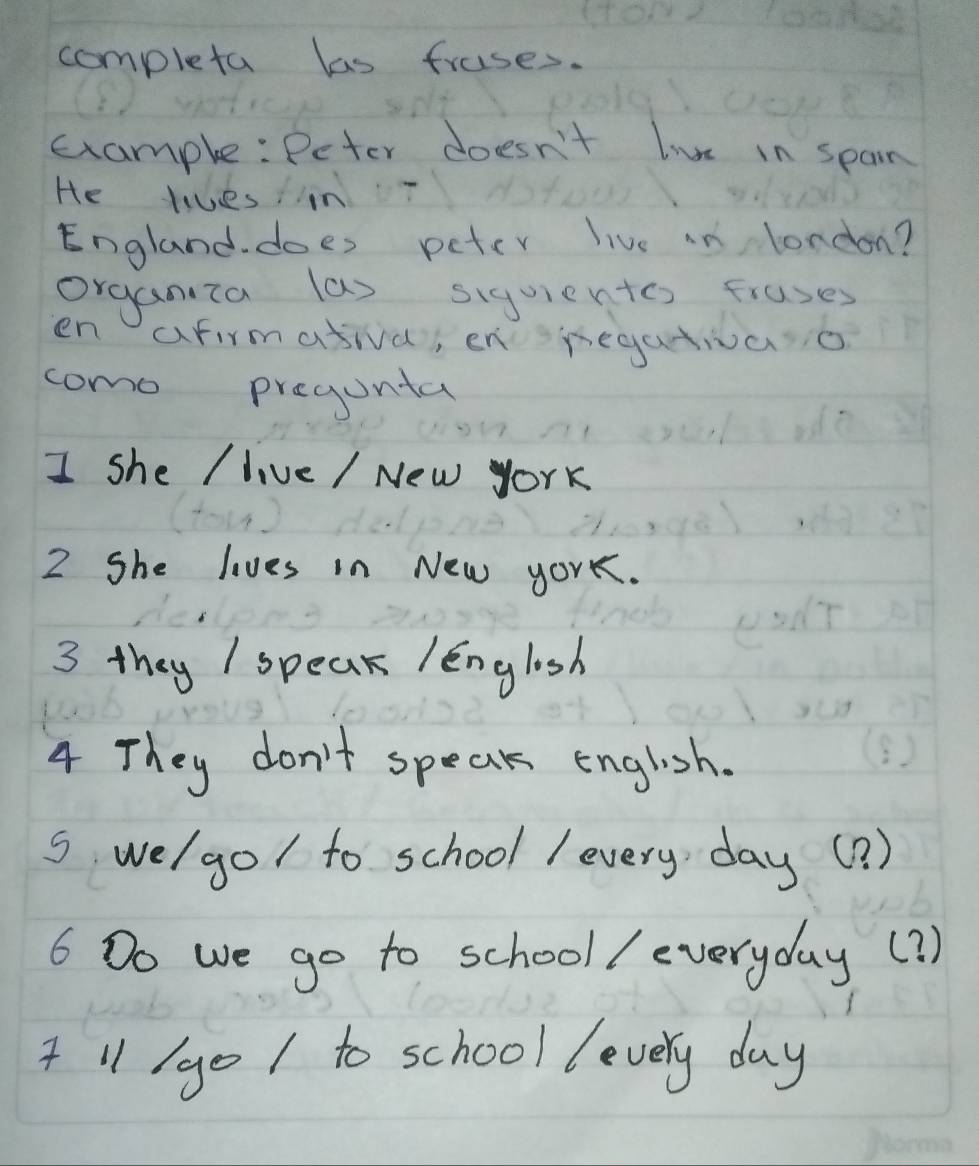 completa las frases.
Example: Peter doesn't live in spain
He lives in
England. does peter live in london?
Organiza las siguientes frases
en afirmativa, en negativa o
como pregunta
1 She / live / New york
2 She lives in New york.
3 they / speak / English
4 They don't speak English.
5 we / go / to school / every day (?)
6 Do we go to school / everyday (?)
7 11 / go / to school / every day
Norma